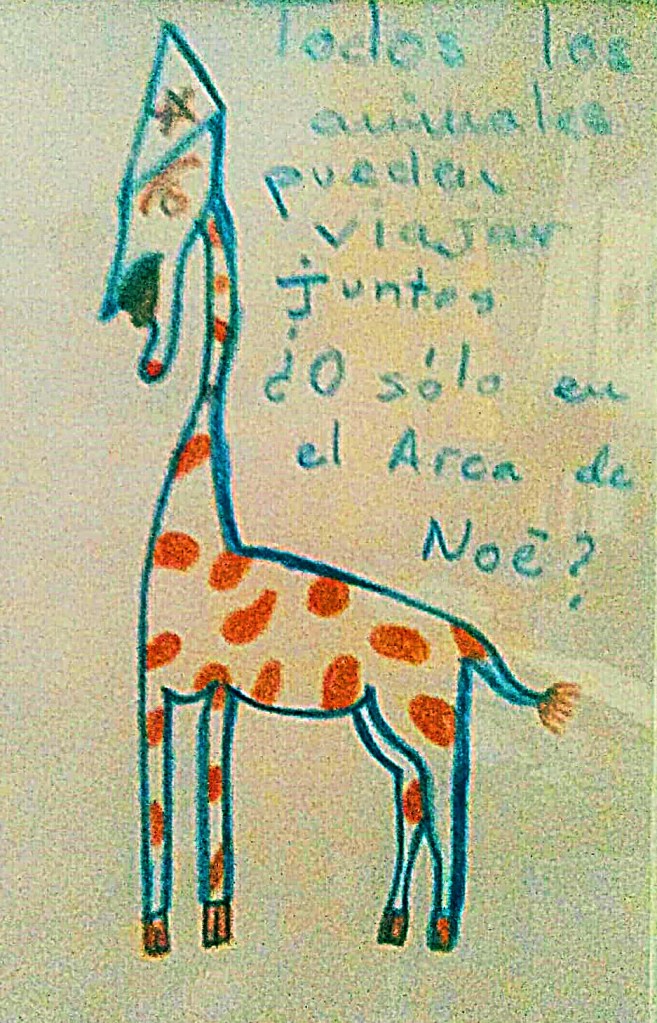 Todos los
animales
puedan
viajar
juntos
¿O sólo en
el Arca de
Noé?